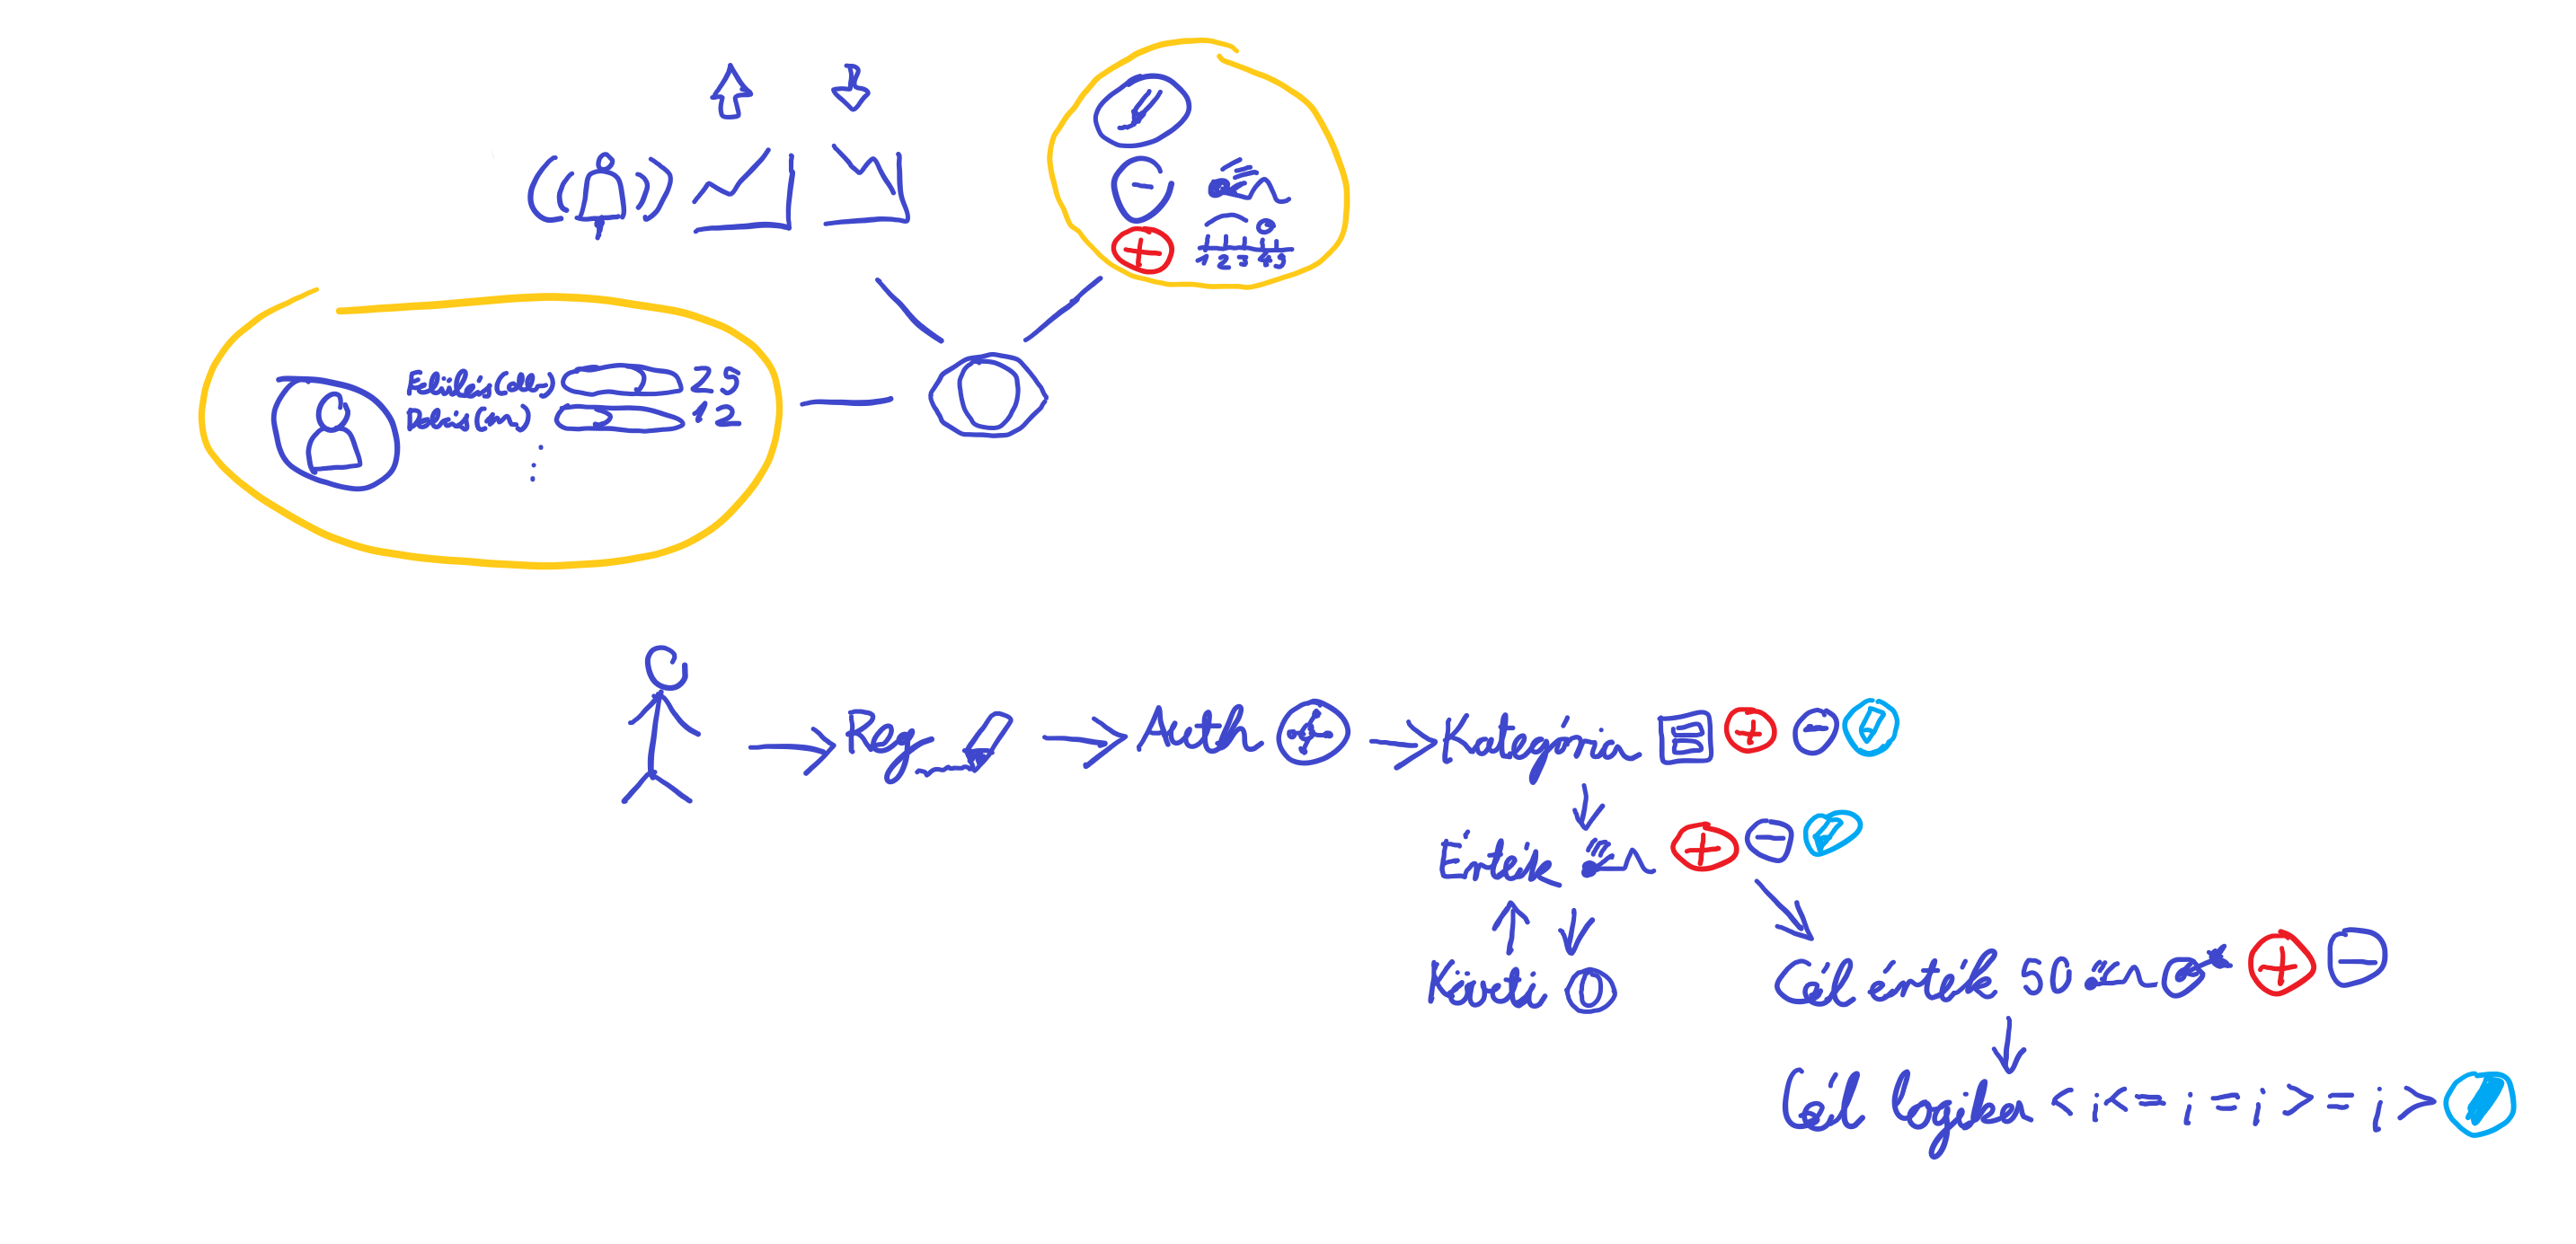 1 2 3 4 5
Felülés (db) 25
12
Reg
Auth
Kategória
Érték
Követi
Cél érték 50
Cél logika < ; <= ; = ; >= ; >